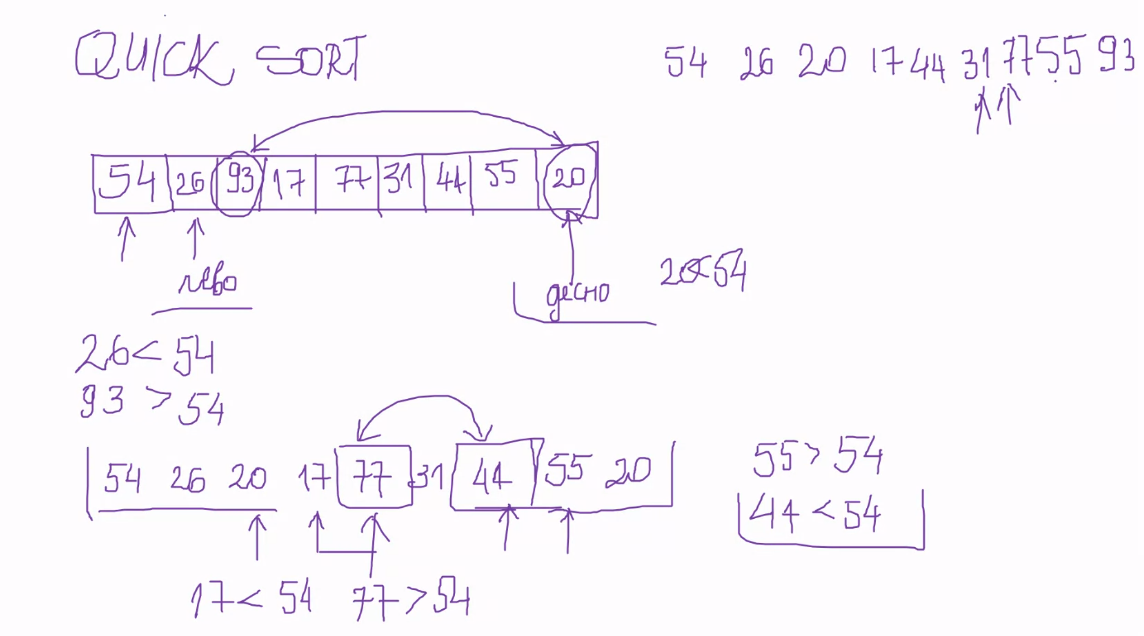 QUICK SORT
54 26 20 17 44 31 77 55 93
54 26 93 17 77 31 44 55 20
лево
десно
20<54
26< 54
93 > 54
54 26 20 17 77 31 44 55 20
55> 54
44 <54
17< 54 77>54